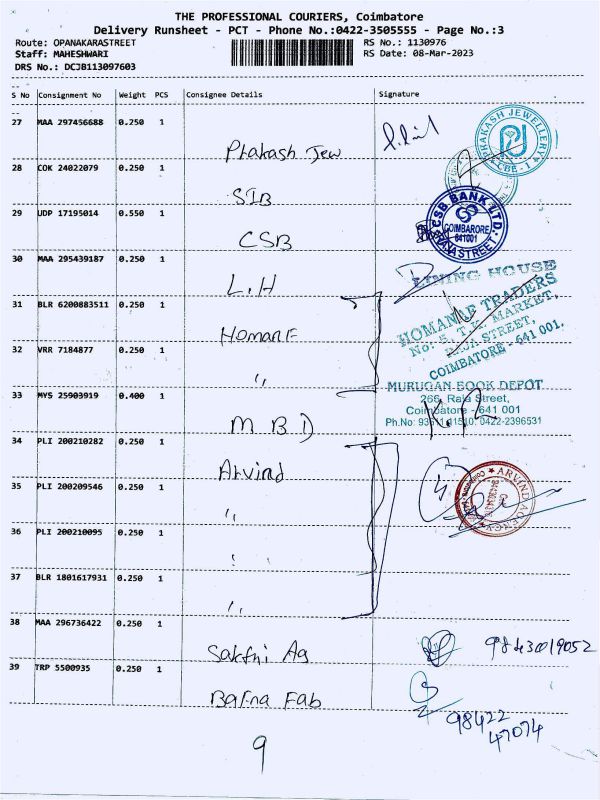 THE PROFESSIONAL COURIERS, Coimbatore
Delivery Runsheet - PCT - Phone No.:0422-3505555 - Page No.:3
Route: OPANAKARASTREET RS No.: 1130976
Staff: MAHESHWARI RS Date: 08-Mar-2023
DRS No.: DCJB113097603
S No Consignment No Weight PCS Consignee Details Signature
27 MAA 297456688 0.250 1
Prakash Jew
PRAKASH JEWELLERY
CBE - 1
28 COK 24022079 0.250 1
SIB
29 UDP 17195014 0.550 1
CSB
CSB BANK LTD.
COIMBARORE
641001
RAJA STREET
30 MAA 295439187 0.250 1
L.H
LINING HOUSE
31 BLR 6200883511 0.250 1
Homane
HOMANAE TRADERS
No: 5, T.K. MARKET,
RAJA STREET,
COIMBATORE - 641 001.
32 VRR 7184877 0.250 1
"
33 MYS 25903919 0.400 1
M B D
MURUGAN BOOK DEPOT
266, Raja Street,
Coimbatore - 641 001
Ph.No: 0422-2396531
34 PLI 200210282 0.250 1
Arvind
ARVIND AGENCY
35 PLI 200209546 0.250 1
"
36 PLI 200210095 0.250 1
"
37 BLR 1801617931 0.250 1
"
38 MAA 296736422 0.250 1
Sakthi Ag
9843019052
39 TRP 5500935 0.250 1
Bafna Fab
98422
47074
9